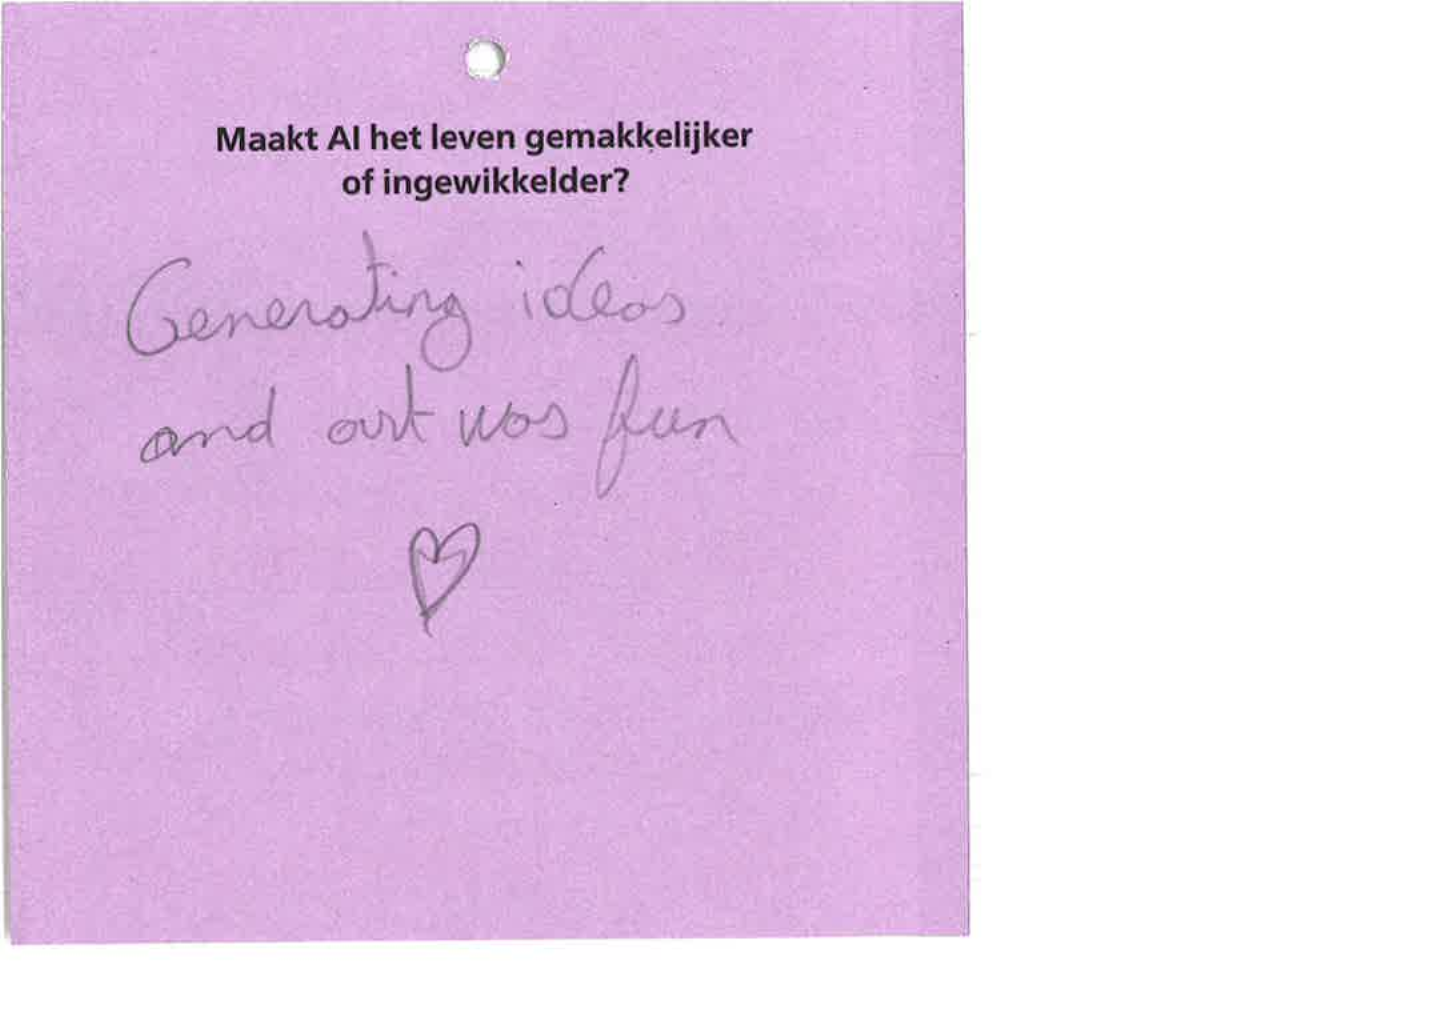 Maakt AI het leven gemakkelijker
of ingewikkelder?
Generating ideas
and art was fun